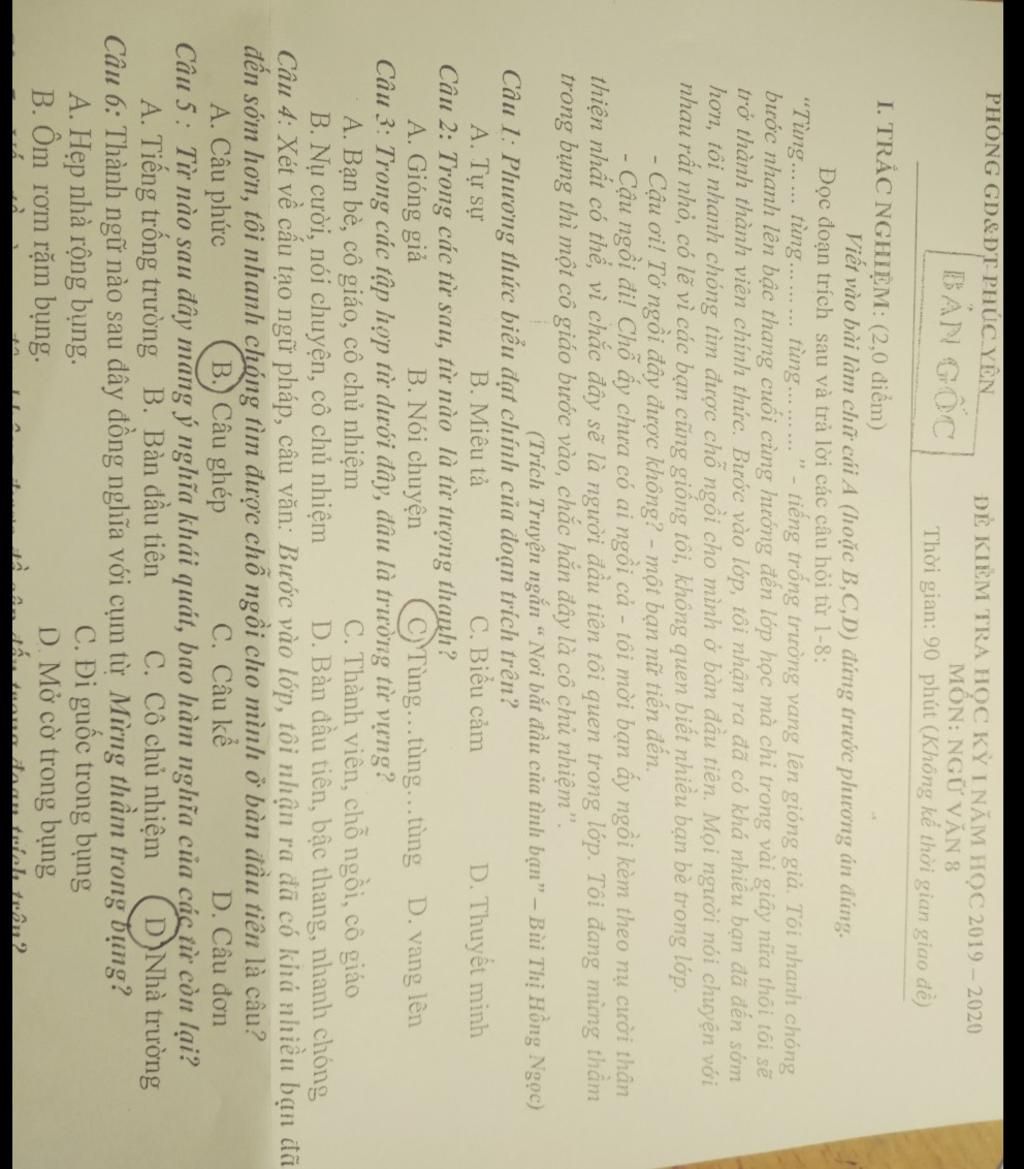 PHÒNG GD&ĐT PHÚC YÊN
BẢN GỐC
ĐỀ KIỂM TRA HỌC KỲ I NĂM HỌC 2019 – 2020
MÔN: NGỮ VĂN 8
Thời gian: 90 phút (Không kể thời gian giao đề)
I. TRẮC NGHIỆM: (2,0 điểm)
Viết vào bài làm chữ cái A (hoặc B,C,D) đứng trước phương án đúng.
Đọc đoạn trích sau và trả lời các câu hỏi từ 1-8:
“Tùng… … tùng… … … tùng… … … ” – tiếng trống trường vang lên gióng giả. Tôi nhanh chóng
bước nhanh lên bậc thang cuối cùng hướng đến lớp học mà chỉ trong vài giây nữa thôi tôi sẽ
trở thành thành viên chính thức. Bước vào lớp, tôi nhận ra đã có khá nhiều bạn đã đến sớm
hơn, tôi nhanh chóng tìm được chỗ ngồi cho mình ở bàn đầu tiên. Mọi người nói chuyện với
nhau rất nhỏ, có lẽ vì các bạn cũng giống tôi, không quen biết nhiều bạn bè trong lớp.
- Cậu ơi! Tớ ngồi đây được không? - một bạn nữ tiến đến.
- Cậu ngồi đi! Chỗ ấy chưa có ai ngồi cả - tôi mời bạn ấy ngồi kèm theo nụ cười thân
thiện nhất có thể, vì chắc đây sẽ là người đầu tiên tôi quen trong lớp. Tôi đang mừng thầm
trong bụng thì một cô giáo bước vào, chắc hẳn đây là cô chủ nhiệm”.
(Trích Truyện ngắn “ Nơi bắt đầu của tình bạn” – Bùi Thị Hồng Ngọc)
Câu 1: Phương thức biểu đạt chính của đoạn trích trên?
A. Tự sự B. Miêu tả C. Biểu cảm D. Thuyết minh
Câu 2: Trong các từ sau, từ nào là từ tượng thanh?
A. Gióng giả B. Nói chuyện C. Tùng…tùng…tùng D. vang lên
Câu 3: Trong các tập hợp từ dưới đây, đâu là trường từ vựng?
A. Bạn bè, cô giáo, cô chủ nhiệm C. Thành viên, chỗ ngồi, cô giáo
B. Nụ cười, nói chuyện, cô chủ nhiệm D. Bàn đầu tiên, bậc thang, nhanh chóng
Câu 4: Xét về cấu tạo ngữ pháp, câu văn: Bước vào lớp, tôi nhận ra đã có khá nhiều bạn đã
đến sớm hơn, tôi nhanh chóng tìm được chỗ ngồi cho mình ở bàn đầu tiên là câu?
A. Câu phức B. Câu ghép C. Câu kể D. Câu đơn
Câu 5 : Từ nào sau đây mang ý nghĩa khái quát, bao hàm nghĩa của các từ còn lại?
A. Tiếng trống trường B. Bàn đầu tiên C. Cô chủ nhiệm D. Nhà trường
Câu 6: Thành ngữ nào sau đây đồng nghĩa với cụm từ Mừng thầm trong bụng?
A. Hẹp nhà rộng bụng. C. Đi guốc trong bụng
B. Ôm rơm rặm bụng. D. Mở cờ trong bụng
đoạn trích trên?